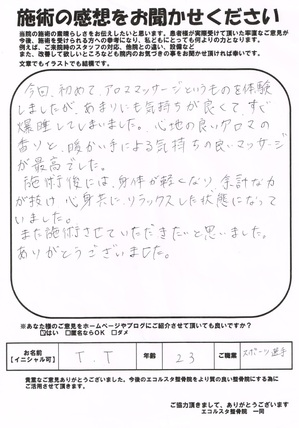 施術の感想をお聞かせください
当院の施術の素晴らしさをお伝えしたいと思います。患者様が実際受けて頂いた率直なご意見が
今後、施術を受けられる方への参考になり、私どもにとっても何よりの力となります。
例えば、ご来院時のスタッフの対応、他院との違い、設備など
また、改善して欲しいところなども院内のお気づきの事をお聞かせ頂ければ幸いです。
文章でもイラストでも結構です。
今回、初めて、アロママッサージというものを体験
しましたが、あまりにも気持ちが良くて、すぐ
爆睡してしまいました。心地の良いアロマの
香りと、暖かい手による気持ちの良いマッサージ
が最高でした。
施術後には、身体が軽くなり、余計な力
が抜け心身共に、リラックスした状態になって
いました。
また施術させていただきたいと思いました。
ありがとうございました。
※あなた様のご意見をホームページやブログにご紹介させて頂いても良いですか？
□はい □匿名ならOK □ダメ
お名前
【イニシャル可】
T.T
年齢
23
ご職業
スポーツ選手
貴重なご意見ありがとうございました。今後のエコルスタ整骨院をより質の良い整骨院にする為に
ご活用させて頂きます。
ご協力頂きまして、ありがとうございます。
エコルスタ整骨院 一同